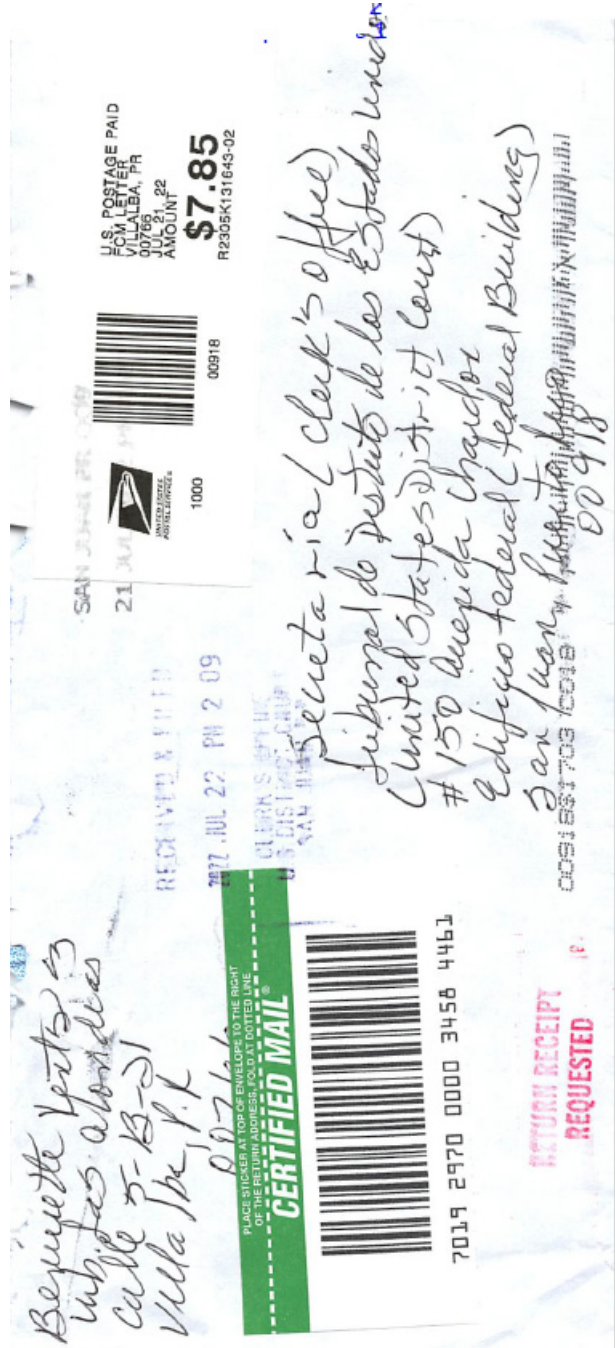 urb. Las Alondas
calle 5-B-21
Villalba, P.R
PLACE STICKER AT TOP OF ENVELOPE TO THE RIGHT
OF THE RETURN ADDRESS, FOLD AT DOTTED LINE
CERTIFIED MAIL®
7019 2970 0000 3458 4461
RETURN RECEIPT
REQUESTED
RECEIVED & FILED
2022 JUL 22 PM 2 09
CLERK'S OFFICE
U.S. DISTRICT COURT
SAN JUAN
SAN JUAN PR 009
21 JUL
UNITED STATES
POSTAL SERVICE®
1000
00918
U.S. POSTAGE PAID
FCM LETTER
VILLALBA, PR
00766
JUL 21, 22
AMOUNT
$7.85
R2305K131643-02
Secretaría (Clerk's office)
Tribunal de Distrito de los Estados Unidos
(United States District Court)
# 150 Avenida Chardon
Edificio Federal (Federal Building)
San Juan, Puerto Rico
00918